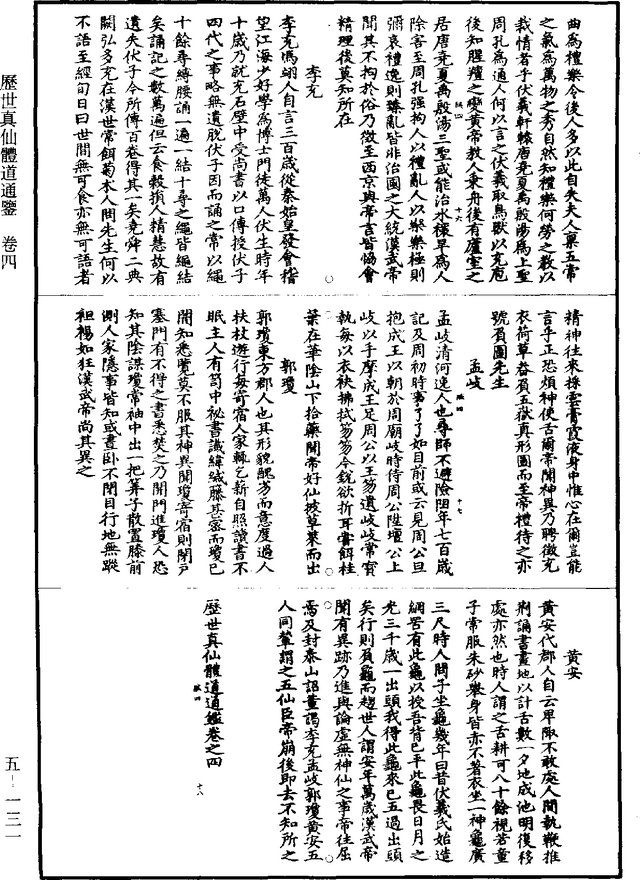 歷世真仙體道通鑑 卷四
曲為禮樂令後人多以此自失夫人稟五常
之氣為萬物之秀自然知禮樂何勞之教以
裁情者乎伏羲軒轅唐堯夏禹殷湯為上聖
周孔為通人何以言之伏羲取鳥獸以充庖
後知腥羶之變黃帝教人乗舟後有廬室之
居唐堯夏禹殷湯三聖或能治水稷早為人
除害至周孔强拘人以禮亂人以樂樂極則
弥哀禮逸則臻亂皆非治國之大統漢武帝
聞其不拘於俗乃徵至西京與帝言皆惬會
精理後莫知所在
李充
李充馮翊人自言三百歲從秦始皇發會指
望江海少好學為博士門徒萬人伏生時年
十歲乃就充石壁中受尚書以口傳授伏子
四代之事略無遺脫伏子因而誦之常以繩
十餘尋縛腰誦一遍一結十尋之繩皆繩結
矣誦記之數萬遍但云食榖損人精慧故有
遺失伏子今所傳百卷得其一矣堯舜二典
闕弘多充在漢世常餌菊本人問先生何以
不語至經旬日曰世間無可食亦無可語者
精神往來採雲膏霞液身中惟心在爾豈能
言乎正恐煩神使舌爾帝聞神異乃聘徵充
衣荷草畚負五嶽真形圖而至帝禮待之亦
號負圖先生
孟岐
孟岐清河逸人也尋師不避險阻年七百歲
記及周初時事了了如目前或云見周公旦
抱成王以朝於周廟岐時侍周公陞壇公上
岐以手摩成王足周公以王笏遺岐岐常寳
執每以衣袂拂拭笏笏今銳欲折耳嘗餌桂
葉在華陰山下拾藥聞帝好仙披草莱而出
郭瓊
郭瓊東方郡人也其形貌醜芳而意度過人
扶杖遊行每寄宿人家輙乞薪自照讀書不
眠主人有笥中祕書讖緯緘藤甚密而瓊已
闇知悉覽莫不服其神異聞瓊寄宿則閉戶
塞門有不得之書悉焚之乃開門進瓊人恐
知其陰謀瓊常袖中出一把筭子散置膝前
測人家隱事皆知或晝卧不閉目行地無蹤
袒裼如狂漢武帝尚其異之
黃安
黃安代郡人自云卑陬不敢處人間執鞭推
荊誦書畫地以計舌數一夕地成池明復移
處亦然也時人謂之舌耕可八十餘視若童
子常服朱砂舉身皆赤不著衣坐一神龜廣
三尺時人問子坐龜幾年曰昔伏羲氏始造
網罟有此龜以授吾背已平此龜畏日月之
光三千歲一出頭我得此龜來已五過出頭
矣行則負龜而趨世人謂安年萬歲漢武帝
聞有異跡乃進與論虛無神仙之事帝往屈
焉及封泰山詔董謁李充孟岐郭瓊黃安五
人同輦謂之五仙臣帝崩後即去不知所之
歷世真仙體道通鑑卷之四
五-一三一